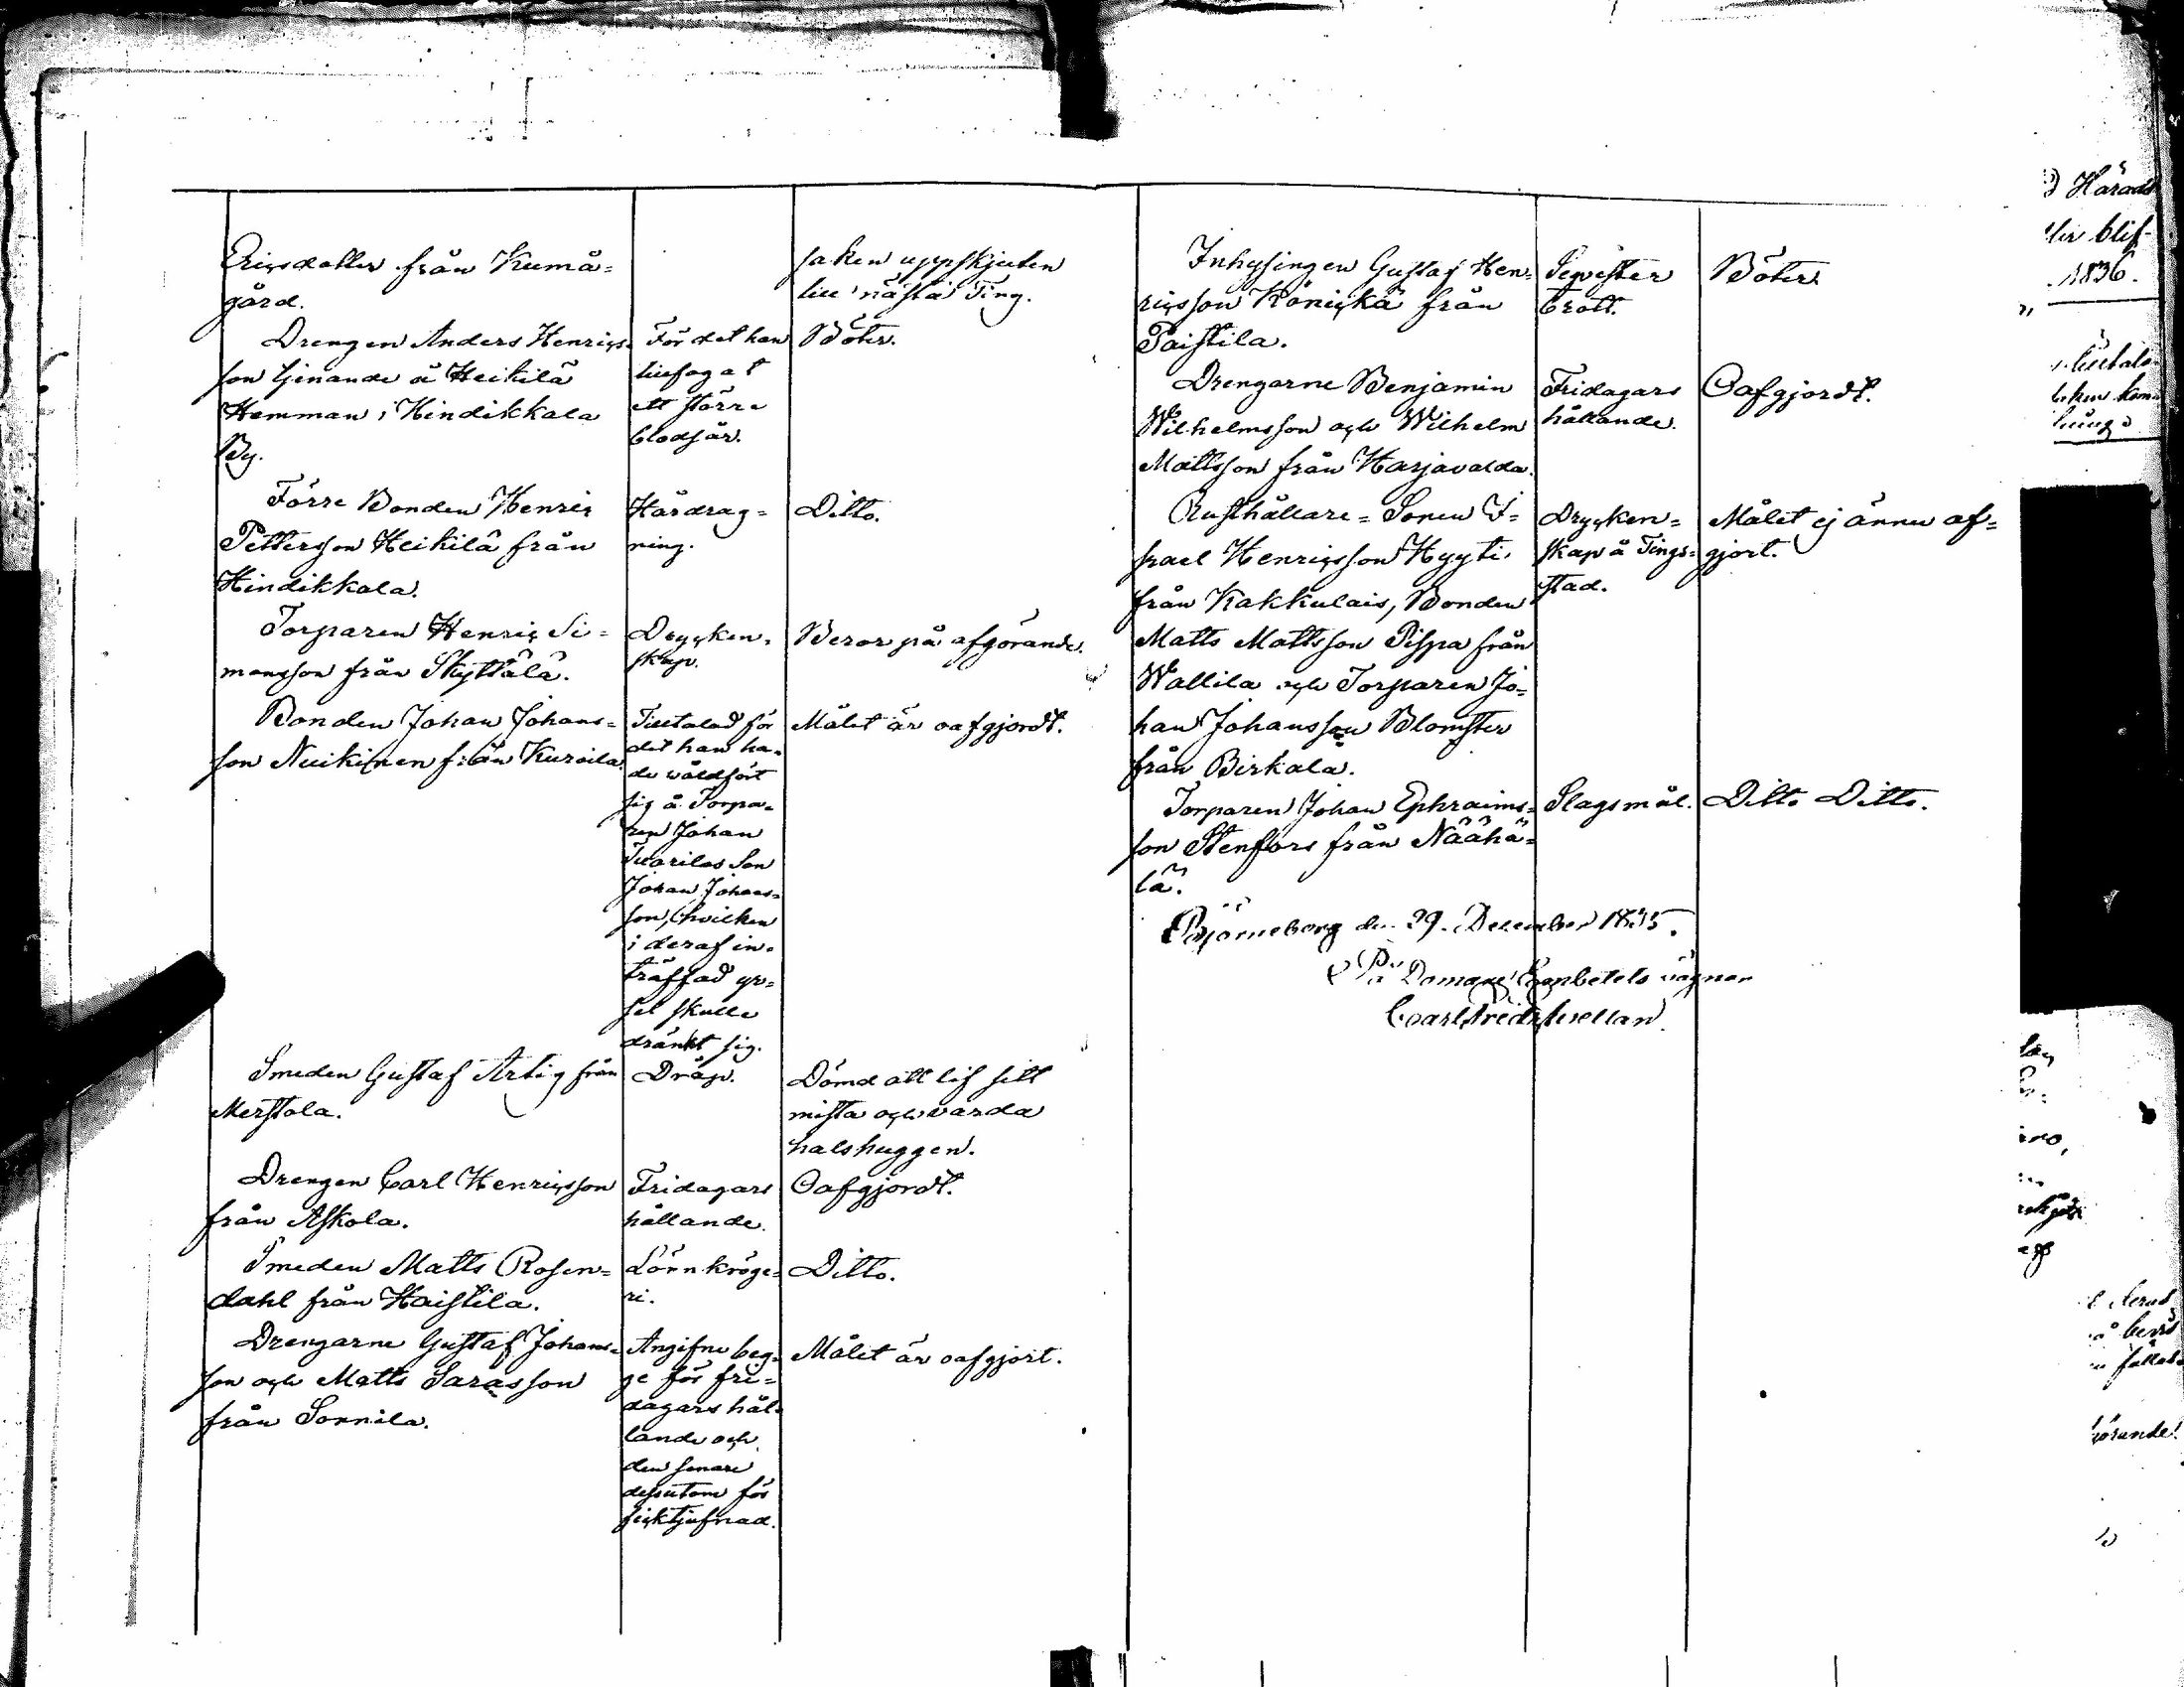 Ericsdotter från Kumå=
gård.
saken uppskjuten
till nästa Ting.
Drengen Anders Henrics=
son tjenande å Heikilä
Hemman i Hindikkala
By.
För det han
tillfogat
ett större
blodsår.
Böter.
Förre Bonden Henric
Pettersson Heikilä från
Hindikkala.
Hårdrag=
ning.
Ditto.
Torparen Henric Si=
monsson från Skyttälä.
Drycken=
skap.
Beror på afgörande.
Bonden Johan Johans=
son Nuikinen från Kuroila.
Tilltalad för
det han ha=
de våldfört
sig å Torpa=
ren Johan
Tuorilas Son
Johan Johans=
son, hvilken
i deraf in=
träffad yr=
sel skulle
dränkt sig.
Målet är oafgjordt.
Smeden Gustaf Artig från
Merstola.
Dråp.
Dömd att lif sitt
mista och varda
halshuggen.
Drengen Carl Henricsson
från Askola.
Fridagars
hållande.
Oafgjordt.
Smeden Matts Rosen=
dahl från Haistila.
Lönnkröge=
ri.
Ditto.
Drengarne Gustaf Johans=
son och Matts Sarasson
från Sonnila.
Angifne beg=
ge för fri=
dagars hål=
lande och
den senare
dessutom för
ficktjufnad.
Målet är oafgjort.
Inhysingen Gustaf Hen=
ricsson Könickä från
Paistila.
Sequester
brott.
Böter.
Drengarne Benjamin
Wilhelmsson och Wilhelm
Mattsson från Harjavalda.
Fridagars
hållande.
Oafgjordt.
Rusthållare=Sonen I=
srael Henricsson Hyyti
från Kakkulais, Bonden
Matts Mattsson Pispa från
Wallila och Torparen Jo=
han Johansson Blomster
från Birkala.
Drycken=
skap å Tings=
stad.
Målet ej ännu af=
gjort.
Torparen Johan Ephraims=
son Stenfors från Näähä=
lä.
Slagsmål.
Ditto Ditto.
Björneborg den 29. December 1835.
På Domare Embetets vägnar
Carl Fredr
Härads
blif-
1836.